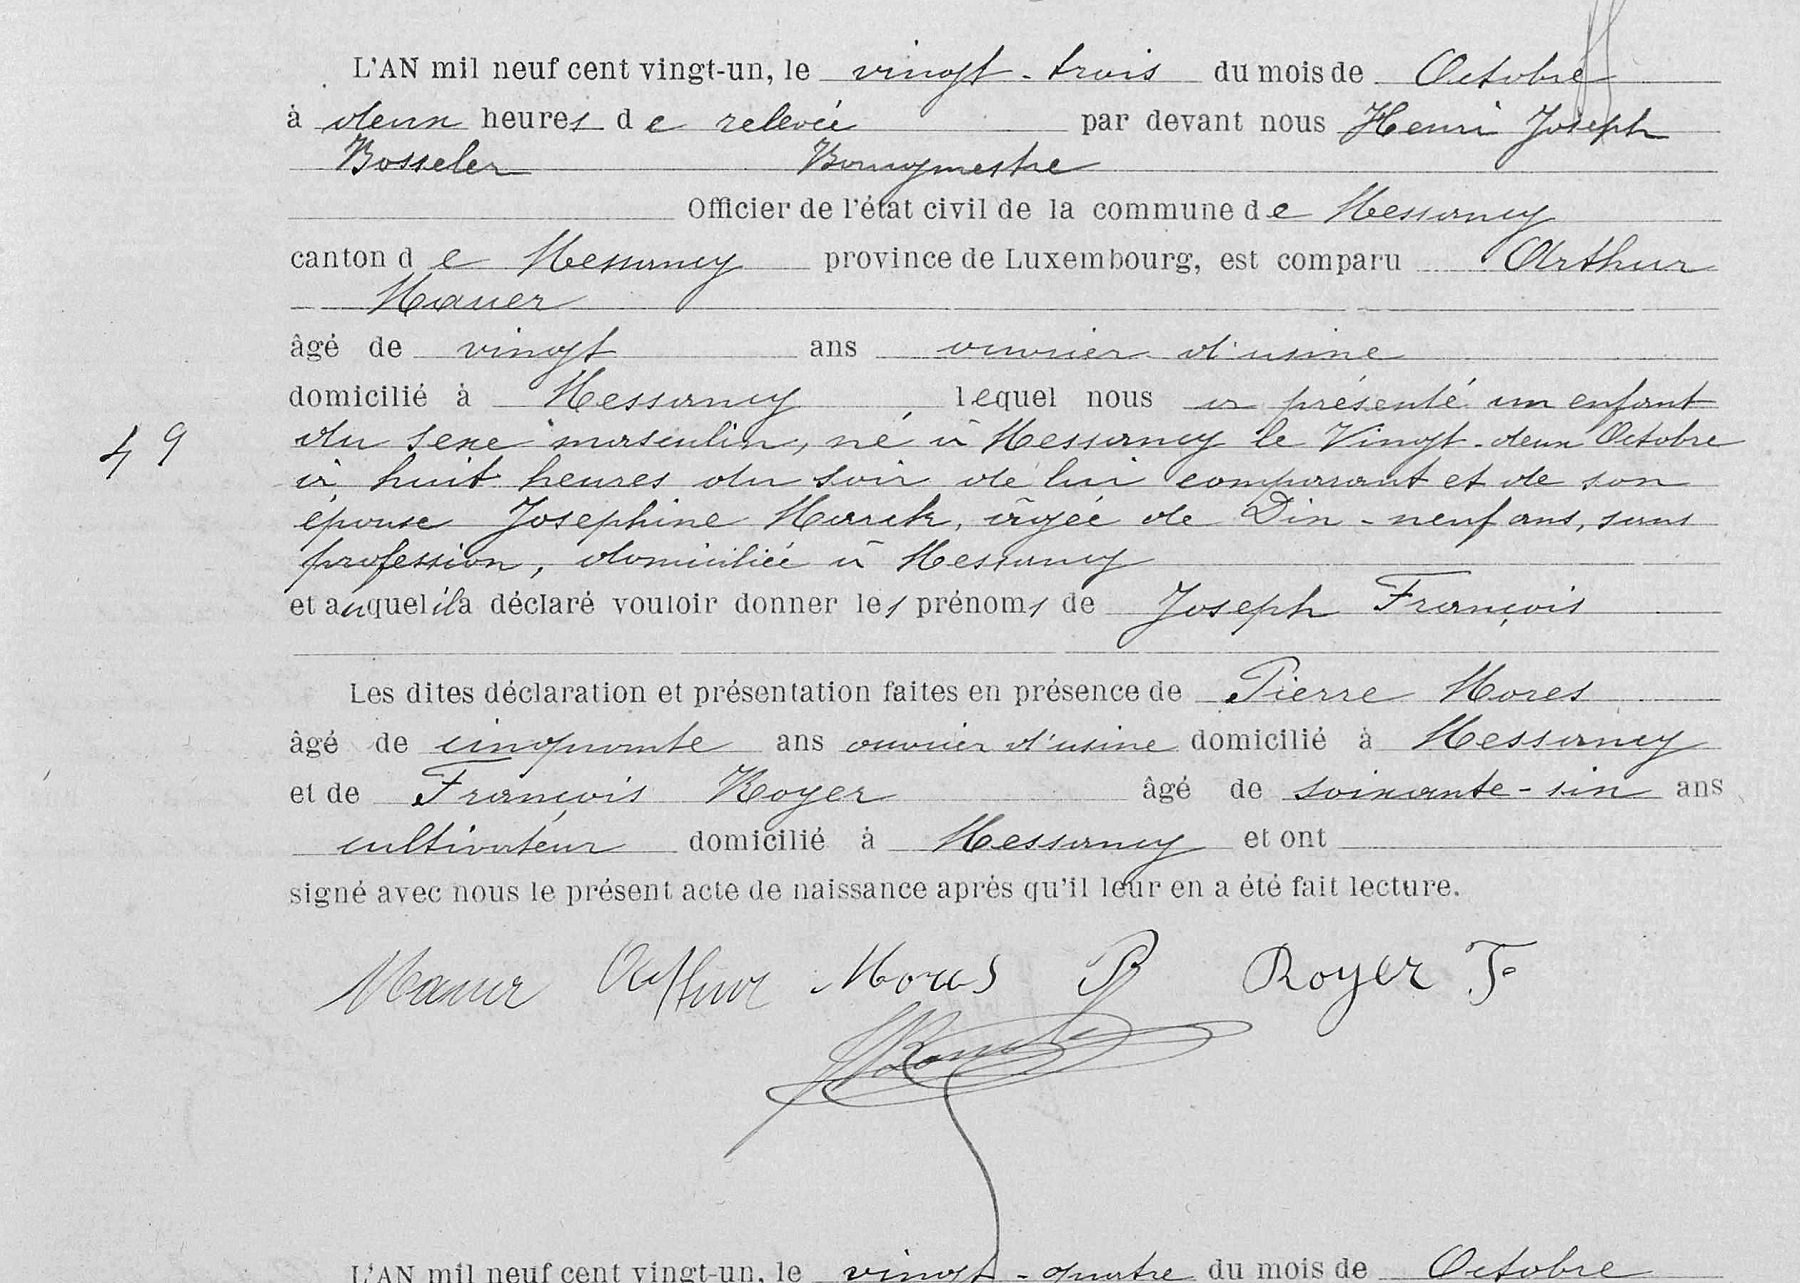 L'AN mil neuf cent vingt-un, le vingt-trois du mois de Octobre
à deux heures de relevée par devant nous Henri Joseph
Bosseler Bourgmestre
Officier de l'état civil de la commune de Messancy
canton de Messancy province de Luxembourg, est comparu Arthur
Mauer
âgé de vingt ans ouvrier d'usine
domicilié à Messancy, lequel nous a présenté un enfant
du sexe masculin, né à Messancy le Vingt-deux Octobre
à huit heures du soir de lui comparant et de son
épouse Josephine Marck, âgée de Dix-neuf ans, sans
profession, domiciliée à Messancy
49
et auquel il a déclaré vouloir donner les prénoms de Joseph François
Les dites déclaration et présentation faites en présence de Pierre Mores
âgé de cinquante ans ouvrier d'usine domicilié à Messancy
et de François Royer âgé de soixante-six ans
cultivateur domicilié à Messancy et ont
signé avec nous le présent acte de naissance après qu'il leur en a été fait lecture.
Mauer Arthur Mores P Royer F
L'AN mil neuf cent vingt-un, le vingt-quatre du mois de Octobre